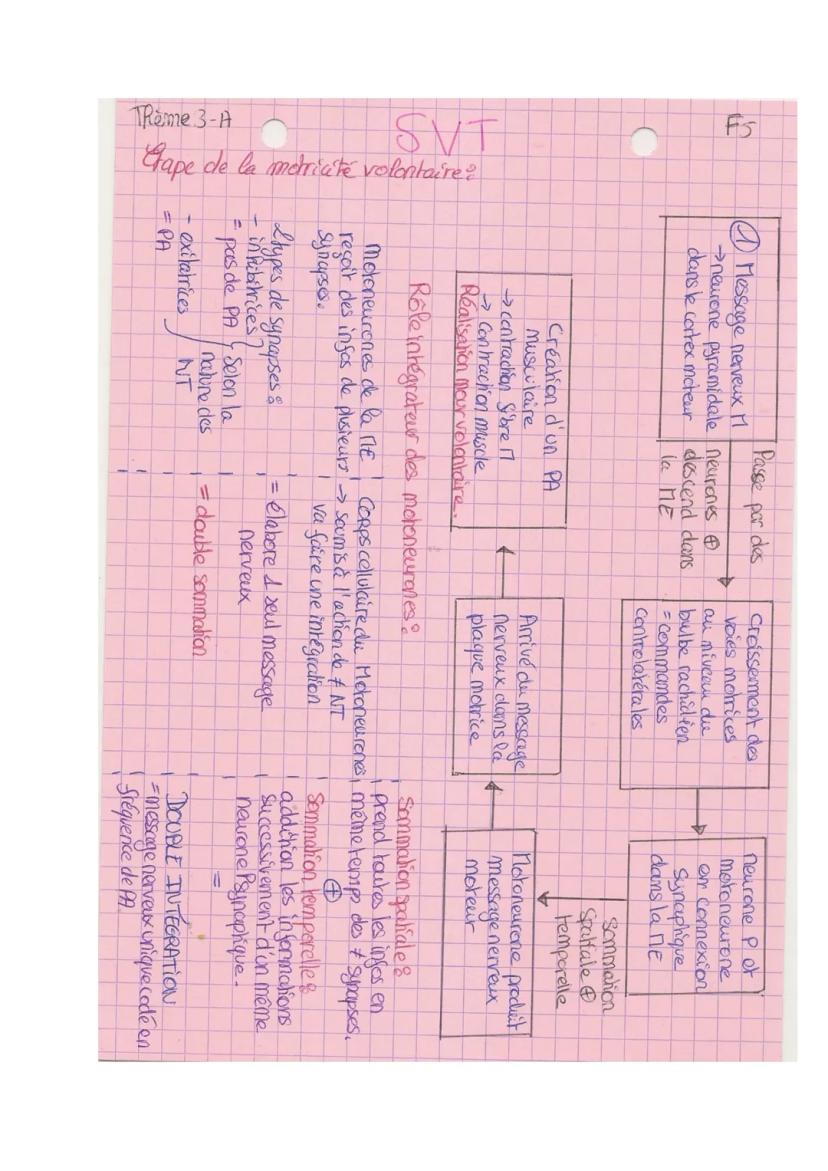 Thème 3-A
SVT
F5
Etape de la motricité volontaire :
① Message nerveux M
→ neurone pyramidale
dans le cortex moteur
Passe par des
neurones ⊕
descend dans
la ME
Croissement des
voies motrices
au niveau du
bulbe rachidien
= commandes
controlatérales
Neurone P et
motoneurone
en connexion
synaptique
dans la ME
Sommation
spatiale ⊕
temporelle
Motoneurone produit
message nerveux
moteur
Arrivé du message
nerveux dans la
plaque motrice
Création d'un PA
musculaire
→ contraction fibre M
→ contraction muscle
Réalisation mouv volontaire.
Rôle intégrateur des motoneurones :
Motoneurones de la ME
reçoit des infos de plusieurs
synapses.
2 types de synapses :
- inhibitrices
= pas de PA
- exitatrices
= PA
selon la
nature des
NT
Corps cellulaire du Motoneurones
→ soumis à l'action de ≠ NT
va faire une intégration
= élabore 1 seul message
nerveux
= double sommation
Sommation spatiale :
prend toutes les infos en
même temps des ≠ synapses.
⊕
Sommation temporelle :
addition les informations
successivement d'un même
neurone Psynaptique.
=
DOUBLE INTÉGRATION
= message nerveux unique codé en
fréquence de PA.